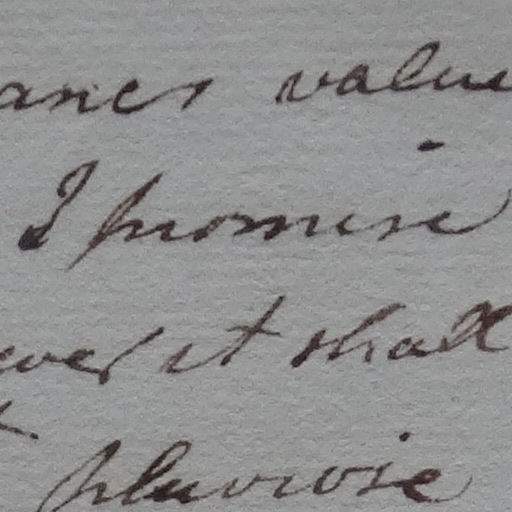 ances value
I promise
ever it shall
pluviose